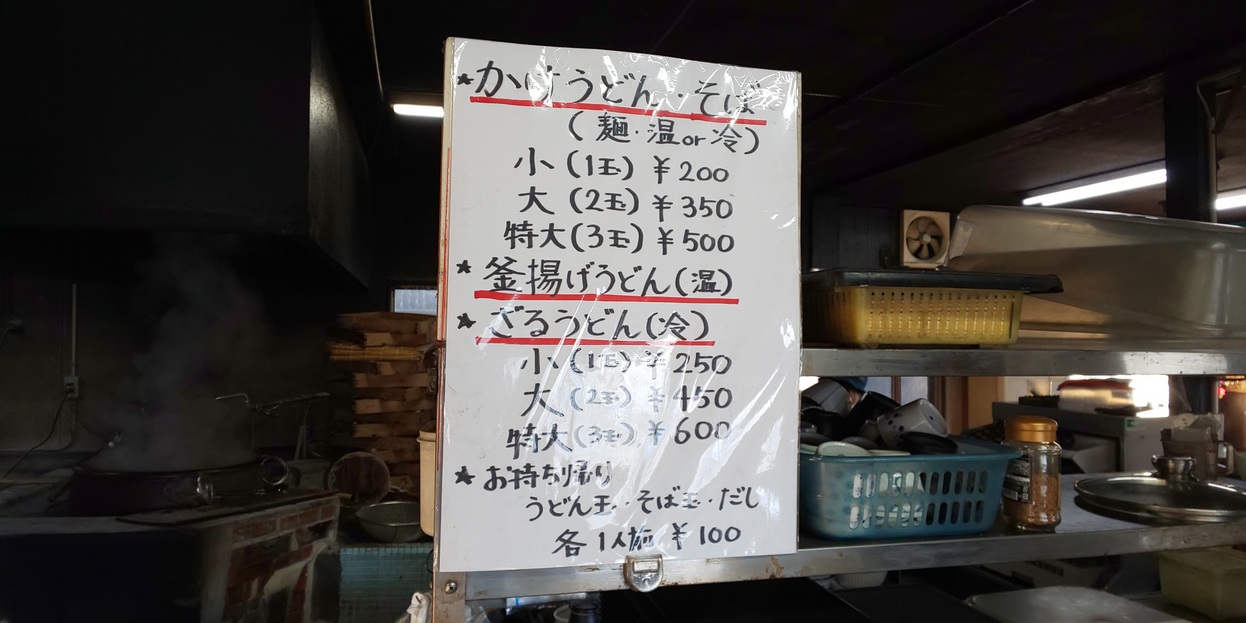 ★かけうどん・そば
(麺・温or冷)
小(1玉)¥200
大(2玉)¥350
特大(3玉)¥500
★釜揚げうどん(温)
★ざるうどん(冷)
小(1玉)¥250
大(2玉)¥450
特大(3玉)¥600
★お持ち帰り
うどん玉・そば玉・だし
各1人前¥100